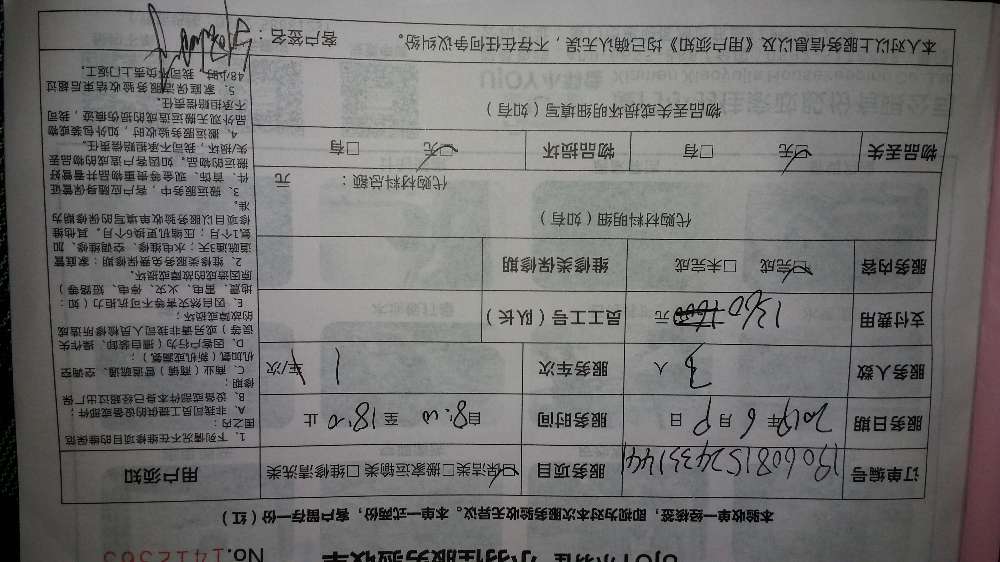 小羽佳服务验收单
No.1412363
本验收单一经核签,即视为对本次服务验收无异议。本单一式两份,客户留存一份(红)
订单编号
服务项目 ☑保洁类□搬家运输类□维修清洗类
服务日期 2019年6月9日
服务时间 自8:00至18:0止
服务人数 3 人
服务车次 1 车/次
支付费用 1360 元
员工工号(队长)
服务内容 ☑完成 □未完成
维修类保修期
代购材料明细(如有)
代购材料总额: 元
物品丢失 ☑无 □有
物品损坏 ☑无 □有
物品丢失或损坏明细填写(如有)
用户须知
1. 下列情况不在维修项目的维保范
围之内:
A、非我司员工提供的设备或部件;
B、设备或部件本身已经超过出厂保
修期;
C、商业(商铺)管道疏通、空调空
机加氨(新机或漏氨);
D、因客户行为(擅自装卸、操作失
误等)或另请非我司人员检修所造成
的故障或损坏;
E、因自然灾害等不可抗拒力(如:
地震、雷电、火灾、停电、短路等)
原因造成的故障或损坏。
2、维修类服务免费保修期:家庭管
道疏通3天;水电维修、空调维修、加
氨1个月;压缩机更换6个月,其他维
修项目以服务验收单填写的保修期为
准。
3、搬运服务中,客户应随身保管证
件、首饰、现金等贵重物品并看管好
搬运的物品,如因客户造成的物品丢
失/损坏,我司不承担赔偿责任。
4、搬运服务验收时,如外包装或物
品外观无搬运造成的损伤痕迹,我司
不承担赔偿责任。
5、家庭保洁服务验收结束后超过
48小时,我司不负责上门返工。
本人对以上服务信息以及《用户须知》均已确认无误,不存在任何争议纠纷。
客户签名: